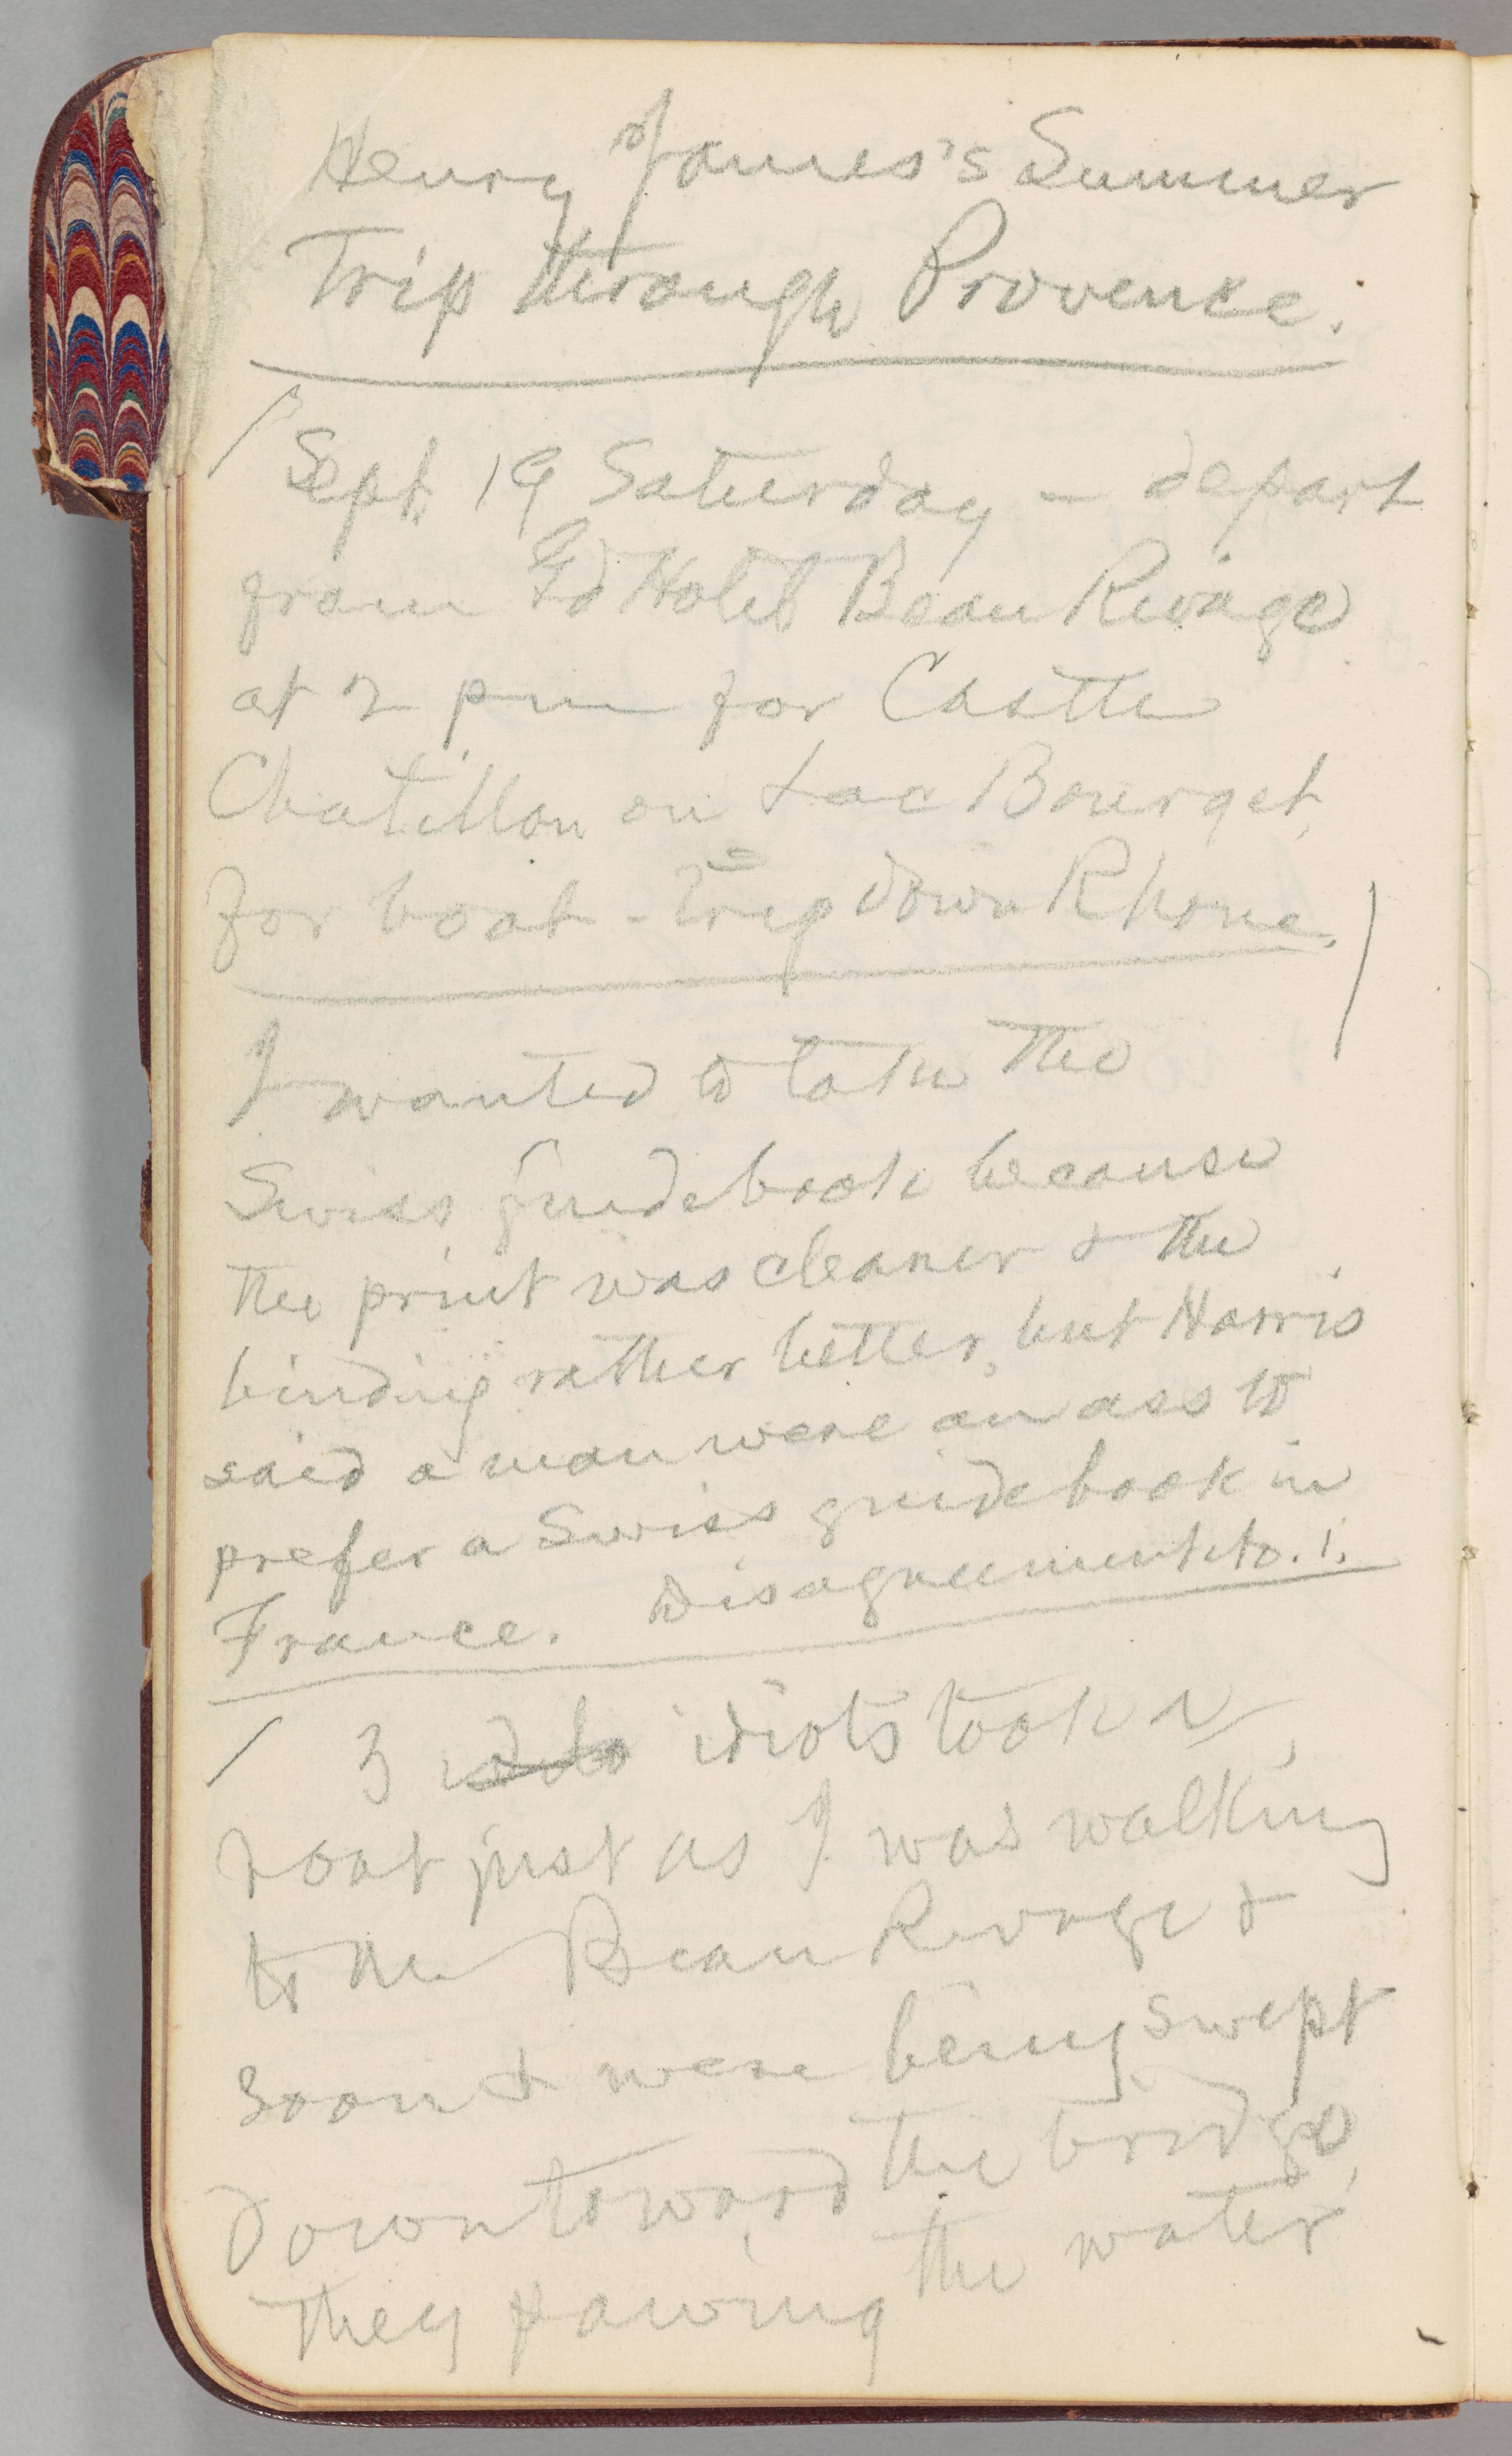 Henry James's Summer
Trip through Provence.
Sept. 19 Saturday – depart
from Gd Hotel Beau Rivage
at 2 pm for Castle
Chatillon on Lac Bourget,
for boat-trip down Rhone.
I wanted to take the
Swiss guidebook because
the print was cleaner & the
binding rather better, but Harris
said a man were an ass to
prefer a Swiss guidebook in
France. Disagreement No. 1.
3 idiots took a
boat just as I was walking
to the Beau Rivage &
soon & were being swept
down toward the bridge,
they pawing the water